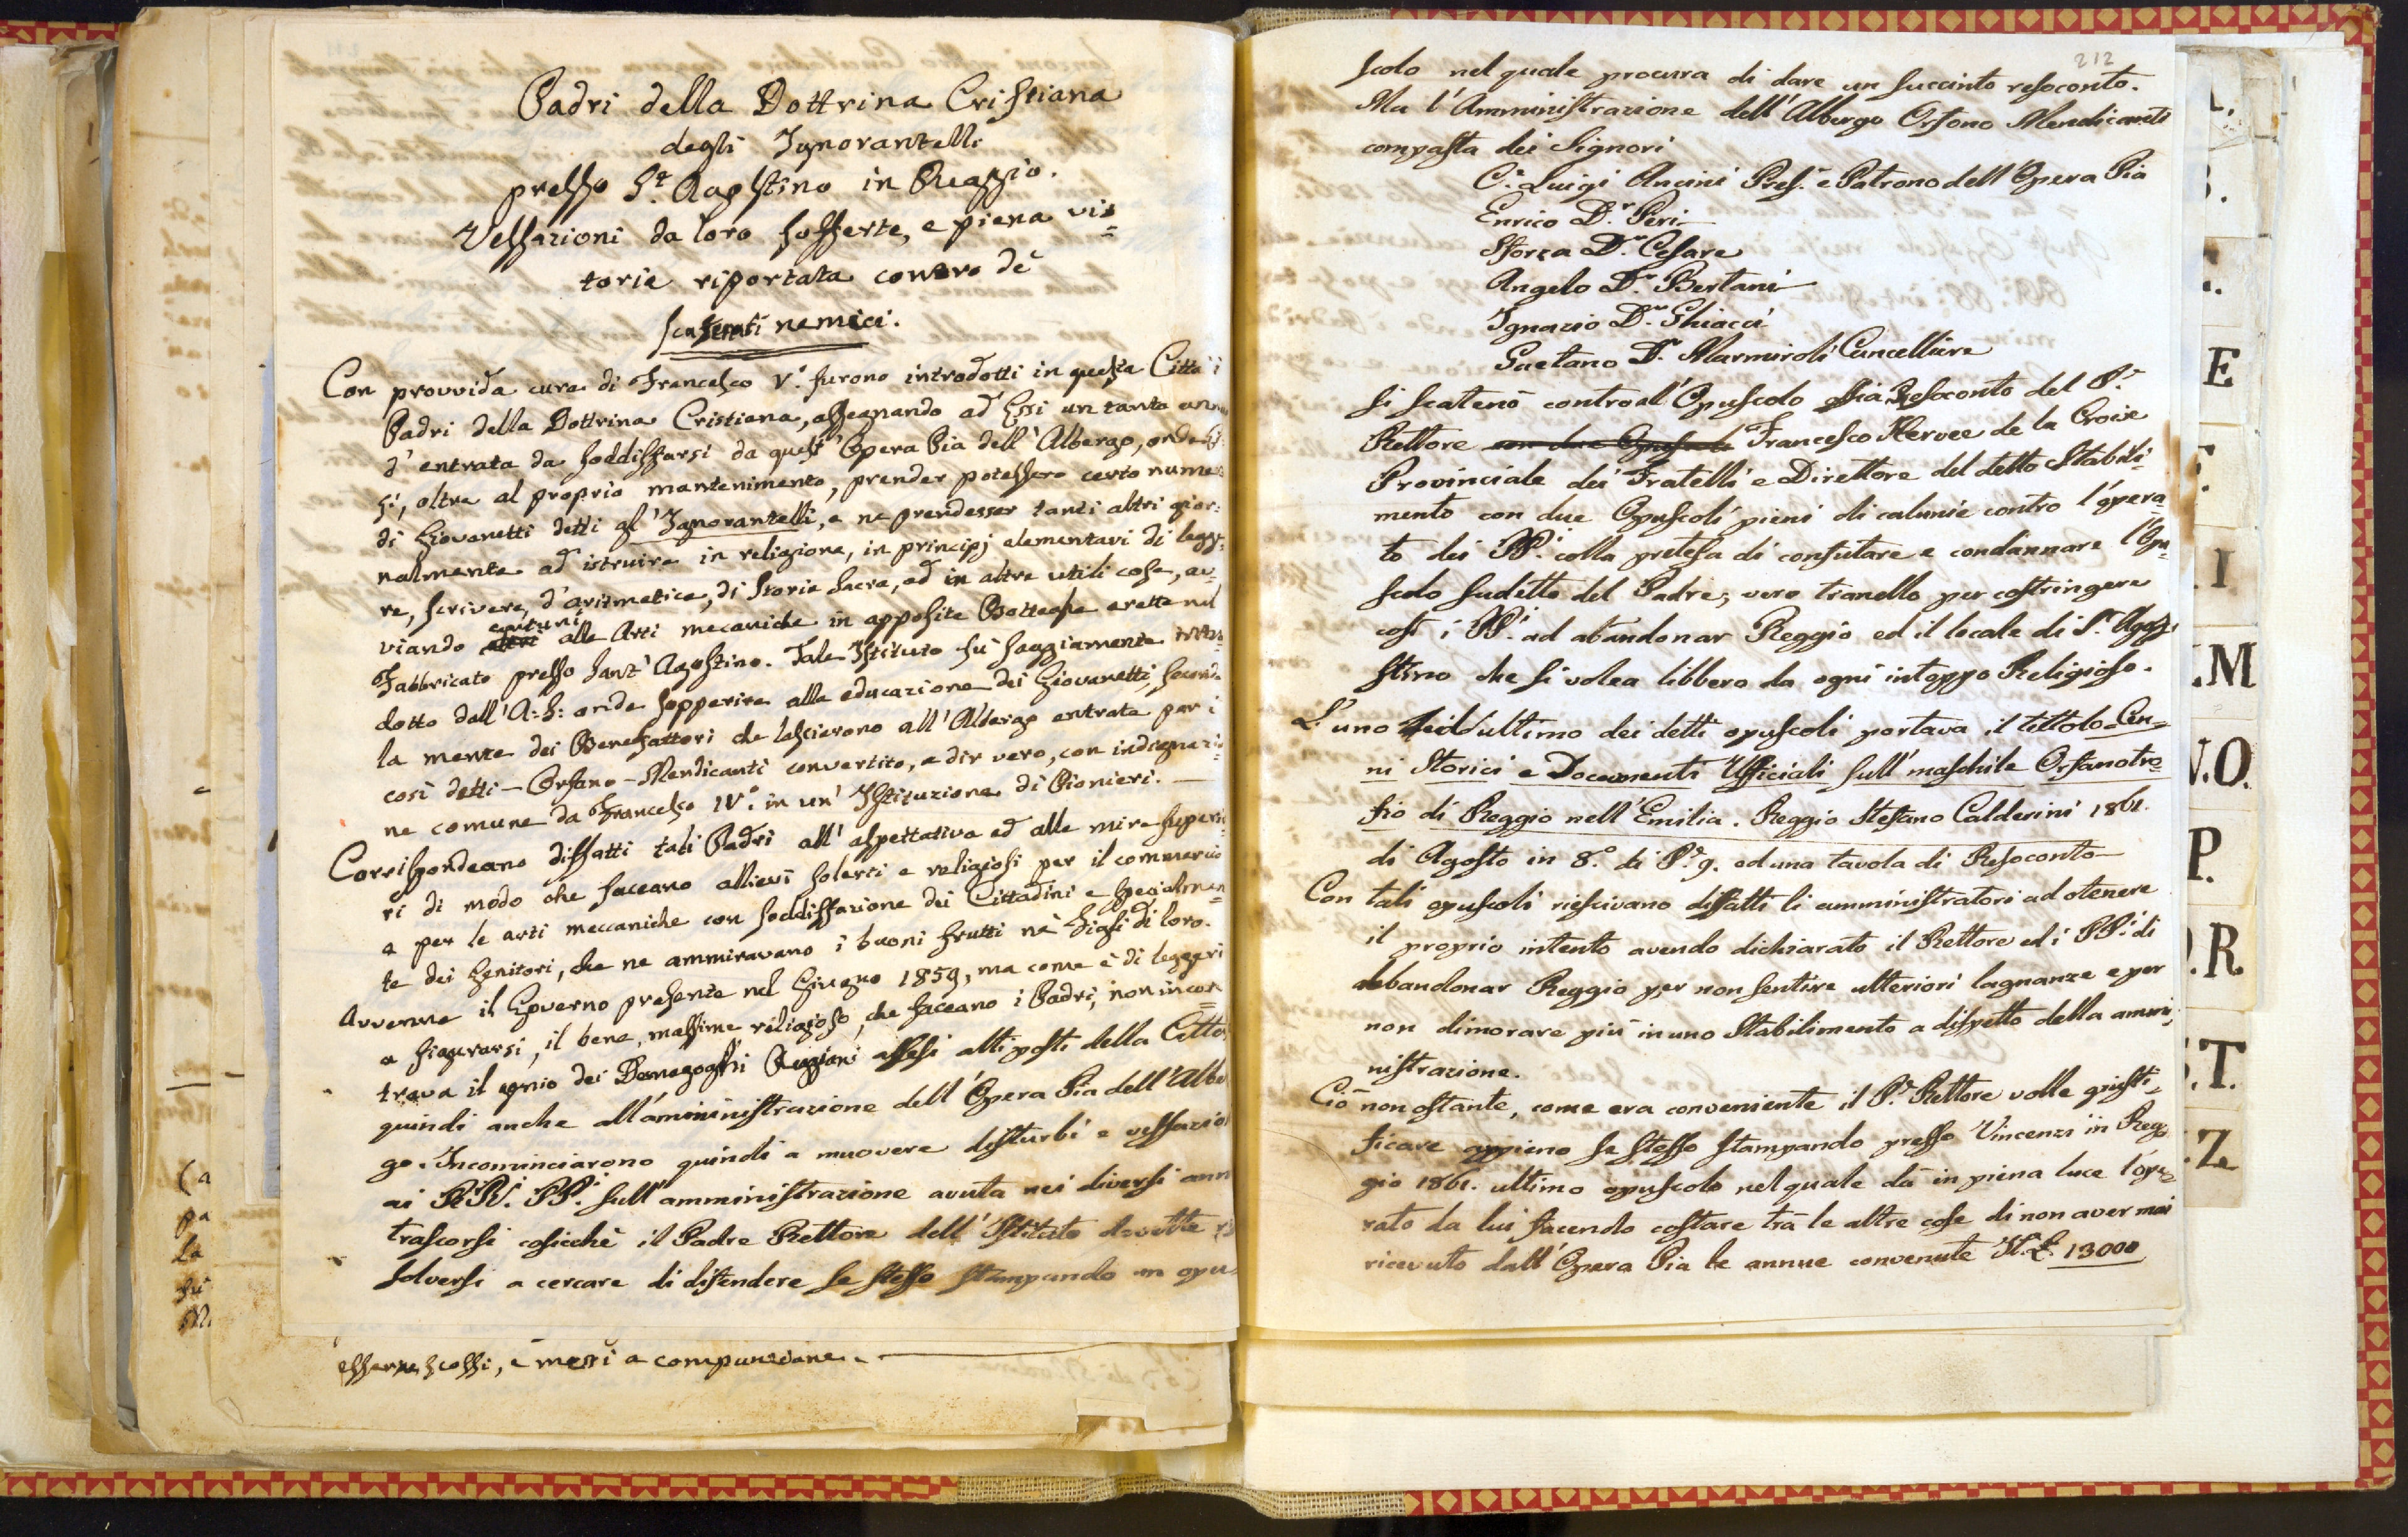 Padri della Dottrina Cristiana
degli Ignorantelli
presso St. Agostino in Reggio.
Vessazioni da loro sofferte, e piena vit=
toria riportata contro de'
nemici.
Con provvida cura di Francesco V.° furono introdotti in questa Città i
Padri della Dottrina Cristiana, assegnando ad Essi un tanto
d'entrata da soddisfarsi da quest'Opera Pia dell'Albergo, onde
si, oltre al proprio mantenimento, prender potessero certo
di Giovanetti detti gl'Ignorantelli, e ne prendesser tanti altri gior=
nalmente ad istruire in religione, in principj elementari di legge=
re, scrivere, d'aritmetica, di Storia Sacra, ed in altre utili cose, av=
viando alle Arti mecaniche in apposite Botteghe erette nel
Fabbricato presso Sant'Agostino. Tale Istituto fù saggiamente
dotto dall'A: S: onde sopperire alla educazione dei Giovanetti, secondo
la mente dei Benefattori che lasciarono all'Albergo entrate per i
così detti - Orfano - Mendicanti convertito, a dir vero, con indignazio=
ne comune da Francesco IV.° in un'Istituzione di Pionieri. —
Corrispondeano diffatti tali Padri all'aspettativa ed alle mire superio=
ri di modo che faceano allievi solerti e religiosi per il commercio
e per le arti meccaniche con soddisfazione dei Cittadini e specialmen=
te dei Genitori, che ne ammiravano i buoni frutti nè Figli di loro.
Avvenne il Governo presente nel Giugno 1859, ma come è di leggeri
a figurarsi, il bene, massime religioso, che faceano i Padri, non incon=
trava il genio dei Demagoghi Reggiani assesi alti posti della Città
quindi anche all'amministrazione dell'Opera Pia dell'Alber
go. Incominciarono quindi a muovere disturbi e vessazio
ai RR. PP. sull'amministrazione avuta nei diversi ann
trascorsi cosicchè il Padre Rettore dell'Istituto dovette
solversi a cercare di difendere se stesso stampando un opu=
esserne scossi, e messi a compunzione. —
212
scolo nel quale procura di dare un succinto resoconto.
Ma l'Amministrazione dell'Albergo Orfono Mendicanti
composta dei Signori
C.e Luigi Ancini Pres.e e Patrono dell'Opera Pia
Enrico D.r Peri
Sforza D.r Cesare
Angelo D.r Bertani
Ignazio D.r Ghiacci
Gaetano D.r Marmiroli Cancelliere
si scatenò contro al'Opuscolo ossia Resoconto del P.e
Rettore con due Opuscoli Francesco Hervee de la Croix
Provinciale dei Fratelli e Direttore del detto Stabili=
mento con due Opuscoli pieni di calunie contro l'opera=
to dei PP.i colla pretesa di confutare e condannare l'Opu=
scolo sudetto del Padre, vero tranello per costringere
così i PP.i ad abandonar Reggio ed il locale di S.t Ago=
stino che si volea libbero da ogni intoppo Religioso.
L'uno ultimo dei detti opuscoli portava il tittolo Cen=
ni Storici e Documenti Ufficiali sull'maschile Orfanotro=
fio di Reggio nell'Emilia. Reggio Stefano Calderini 1861.
di Agosto in 8.° di P.e 9. ed una tavola di Resoconto —
Con tali opuscoli riescivano diffatti li amministratori ad otenere
il proprio intento avendo dichiarato il Rettore ed i PP.i di
abbandonar Reggio per non sentire ulteriori lagnanze e per
non dimorare più in uno Stabilimento a dispetto della ammi=
nistrazione.
Ciò non ostante, come era conveniente il P.e Rettore volle giusti=
ficare appieno se stesso stampando presso Vincenzi in Reg=
gio 1861. ultimo opuscolo nel quale dà in piena luce l'ope=
rato da lui facendo costare trà le altre cose di non aver mai
ricevuto dall'Opera Pia le annue convenute It. £. 13000
E
I
M
O.
P.
R.
T.
Z